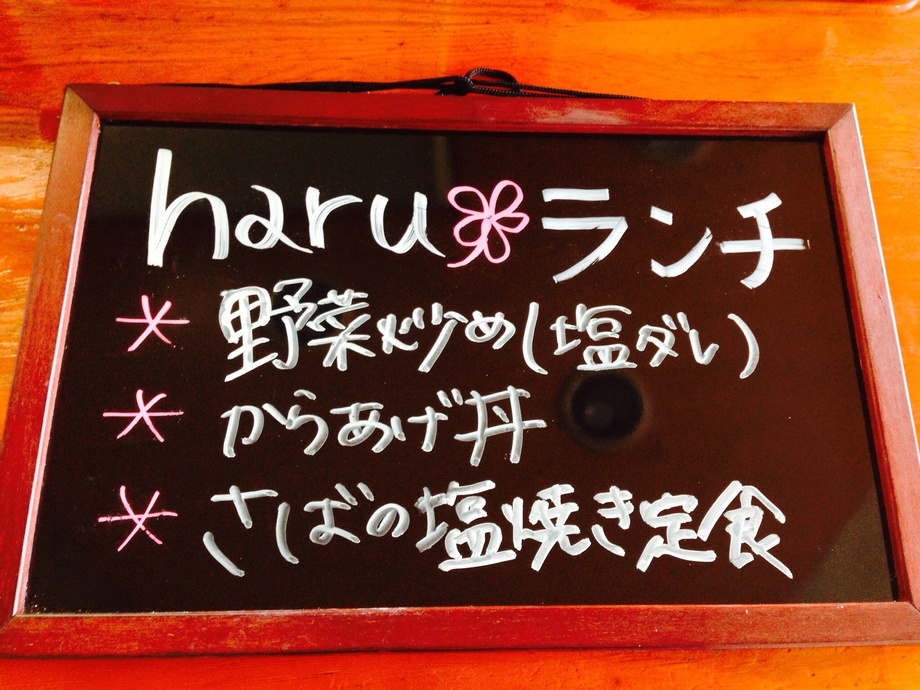 haru ランチ
* 野菜炒め(塩ダレ)
* からあげ丼
* さばの塩焼き定食